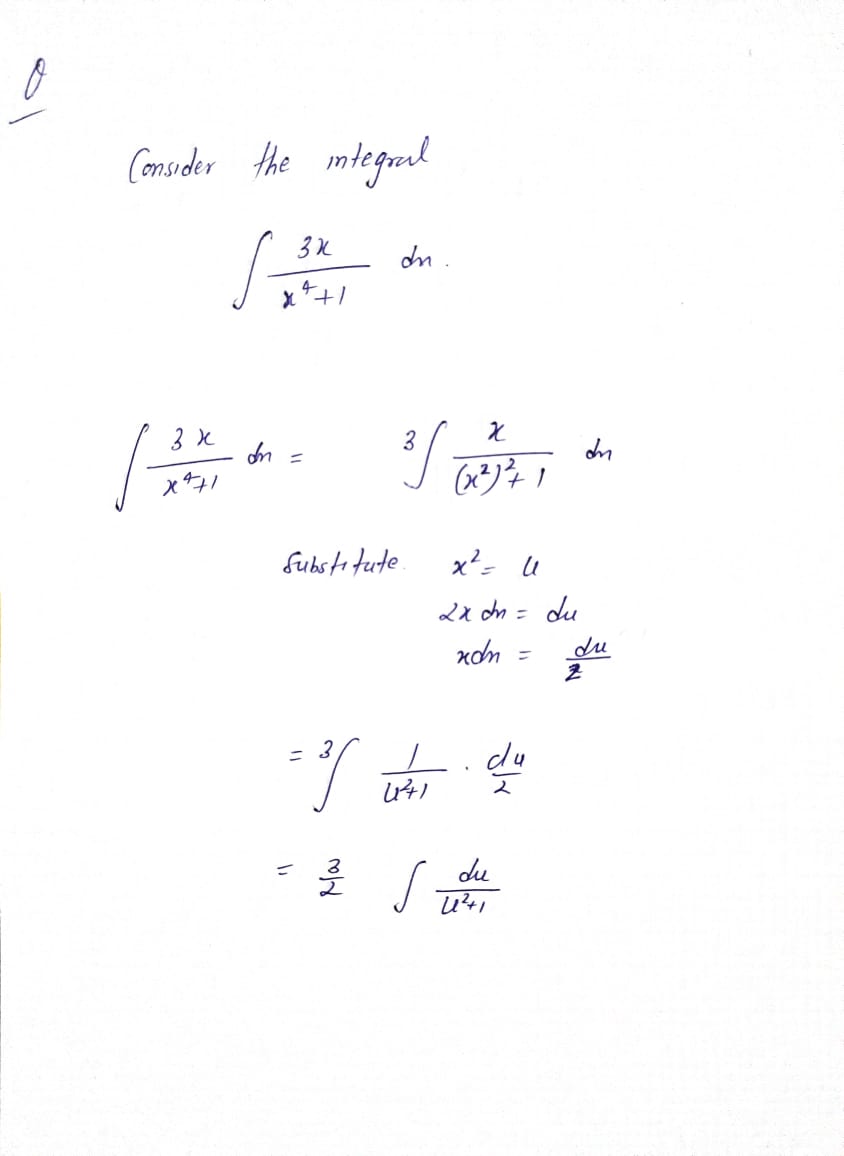 Q
Consider the integral
∫ 3x/(x⁴+1) dx.
∫ 3x/(x⁴+1) dx = 3∫ x/((x²)²+1) dx
Substitute. x² = u
2x dx = du
xdx = du/2
= 3∫ 1/(u²+1) · du/2
= 3/2 ∫ du/(u²+1)